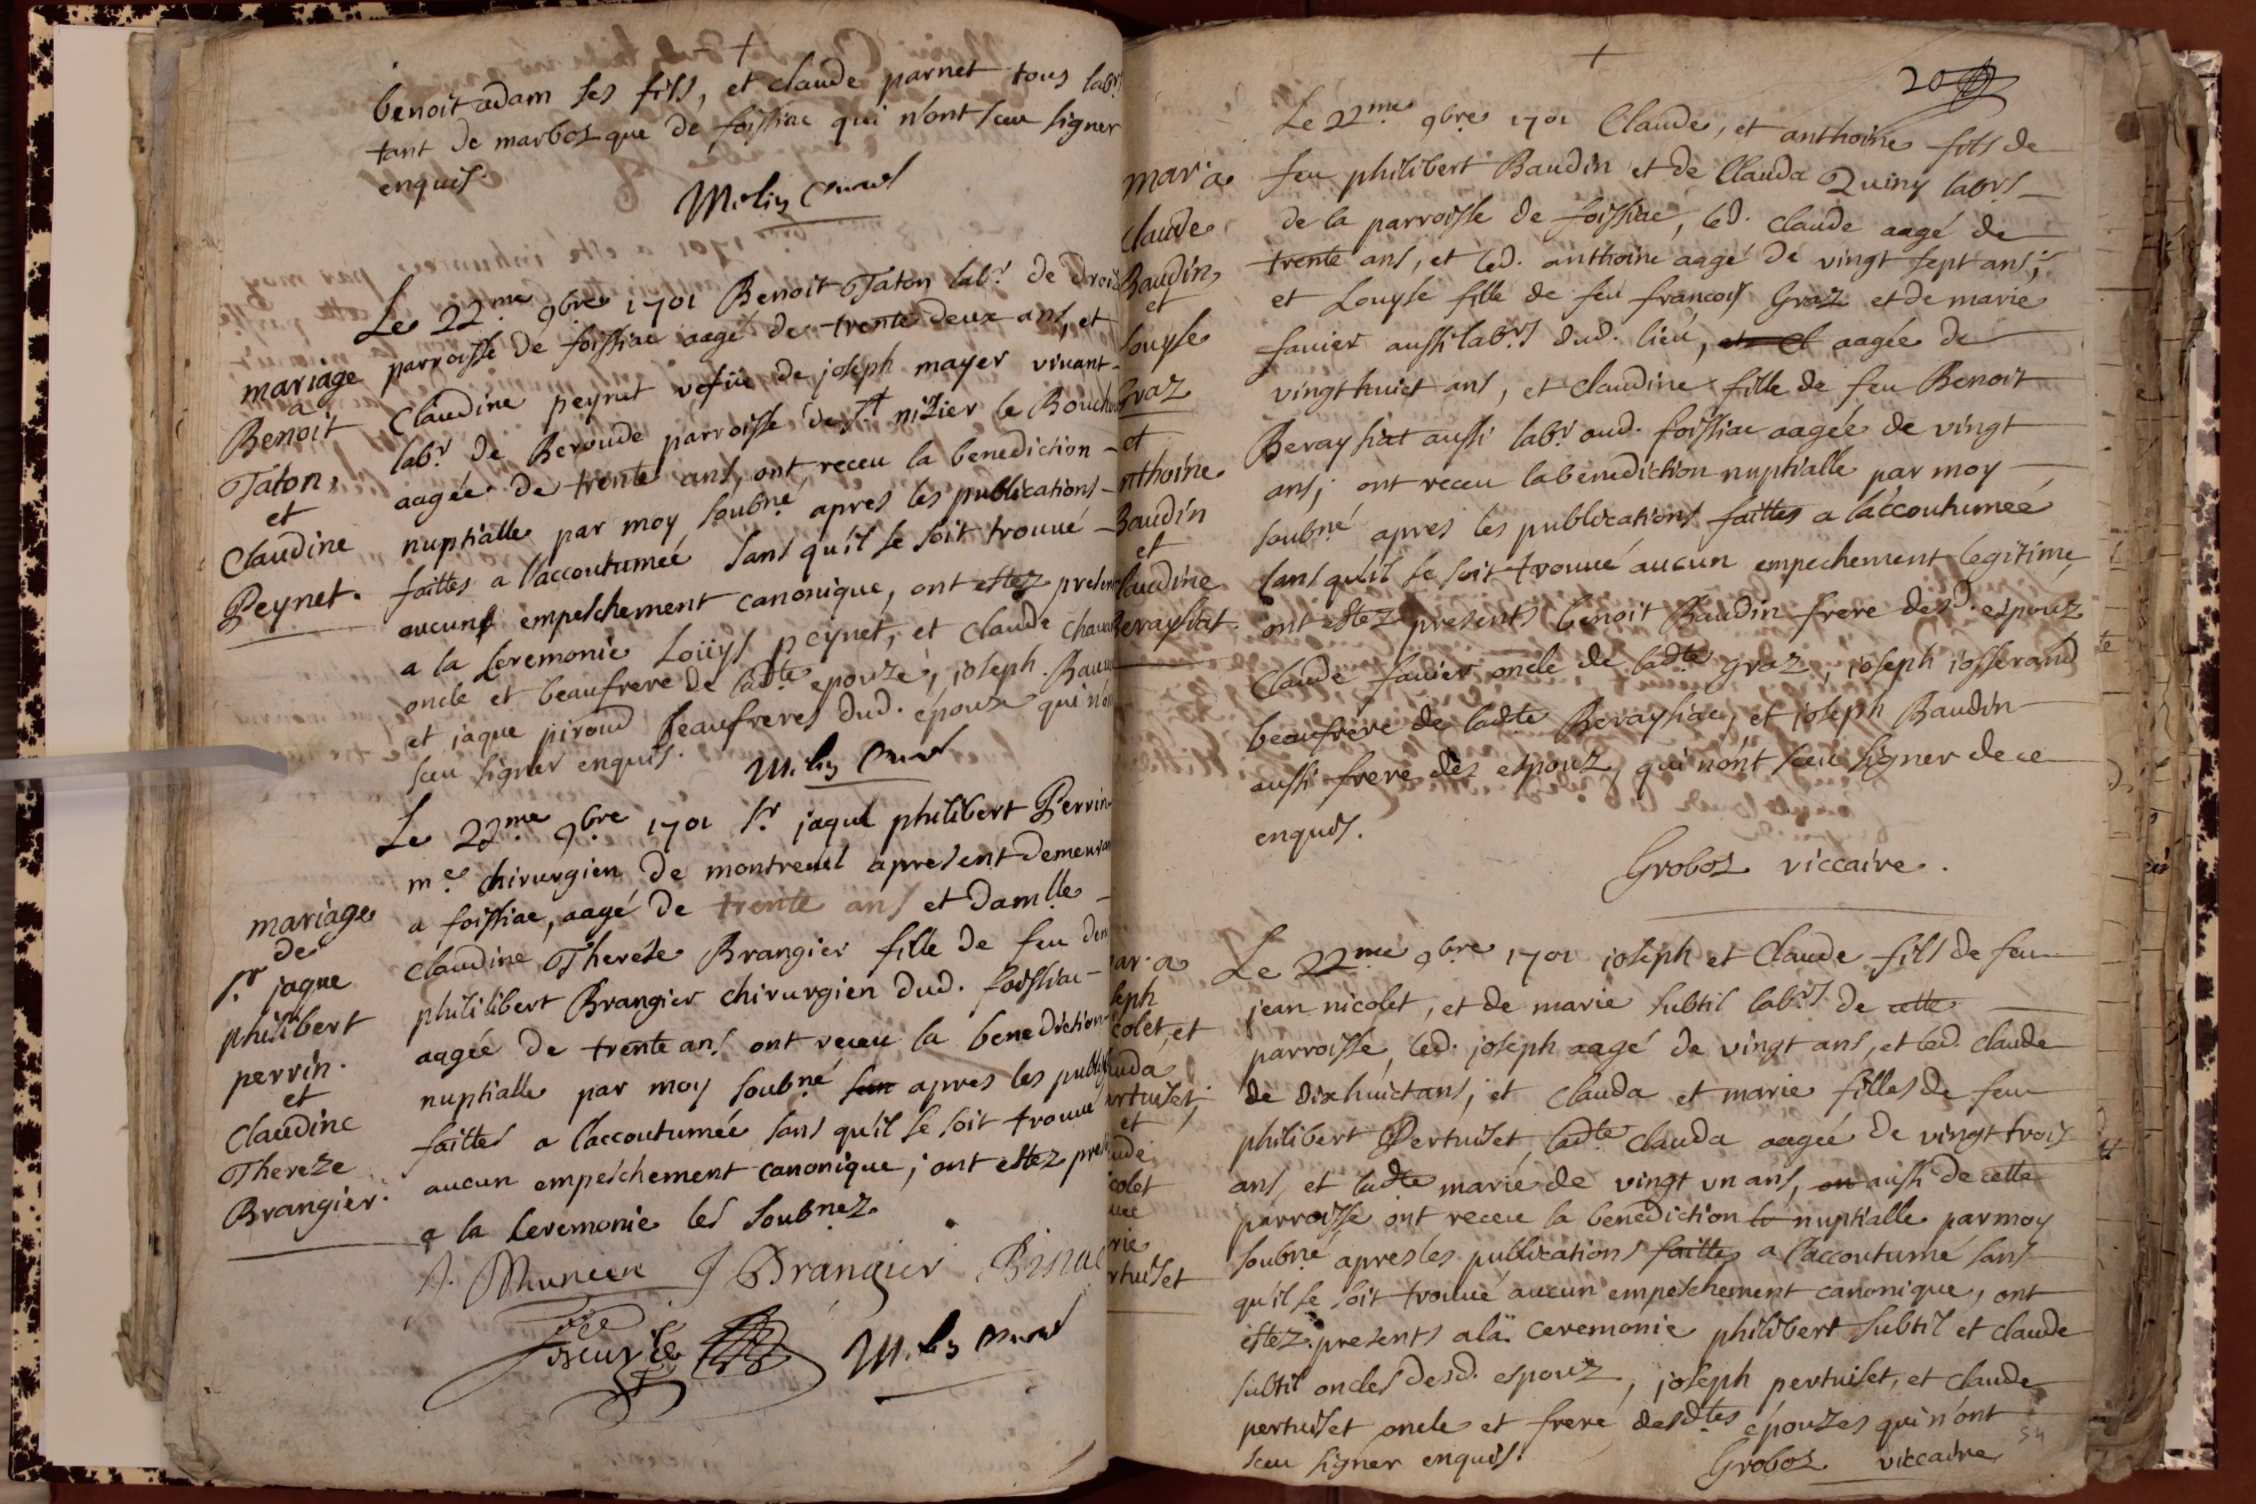 benoit adam ses fils, et claude parnet tous labrs
tant de marboz que de foissiac qui n'ont sceu signer
enquis
Milin Curé
Le 22me 9bre 1701 Benoit Taton labr de
parroisse de foissiac aagé de trente deux ans, et
Claudine peynet vefüe de joseph mayer vivant
labr de Beroude parroisse de st nizier le Bouchoux
aagée de trente ans, ont receu la benediction
nuptialle par moy soubné apres les publications
faittes a l'accoutumeé sans qu'il se soit trouué
aucune empeschement canonique, ont estez presents
a la ceremonie Loüys peynet, et claude
oncle et beaufrere de ladte epouze, joseph
et jaque piroud beaufreres dud. épouze qui n'ont
sceu signer enquis.
Milin Curé
mariage
a
Benoit
Taton,
et
Claudine
Peynet.
Le 22me 9bre 1701 sr jaque philibert Perrin
me chirurgien de montreuil apresent demeurant
a foissiac, aagé de trente ans et damlle
claudine Therese Brangier fille de feu
philibert Brangier chirurgien dud. foissiac
aagée de trente ans ont receu la benediction
nuptialle par moy soubné apres les
faittes a l'accoutumée sans qu'il se soit trouué
aucun empeschement canonique; ont estez
a la ceremonie les soubnez
mariage
de
sr jaque
philibert
perrin.
et
Claudine
Thereze
Brangier.
J Brangier
Milin Curé
20
Le 22me 9bre 1701 Claude, et anthoine fils de
feu philibert Baudin et de Clauda Quiny labrs
de la parroisse de foissiac, led. claude aagé de
trente ans, et led. anthoine aagé de vingt sept ans;
et Louyse fille de feu francois Graz et de marie
fauier aussi labrs dud. lieu, et aagée de
vingt huict ans, et claudine fille de feu Benoit
Beraysiat aussi labr aud. foissiac aagée de vingt
ans; ont receu la benediction nuptialle par moy
soubné apres les publications faittes a l'accoutumeé
sans qu'il se soit trouué aucun empechement legitime
ont estez presents benoit Baudin frere desd. espouz
Claude fauier oncle de ladte graz, joseph josserand
beaufrere de ladte Beraysiac, et joseph Baudin
aussi frere des espouz, qui n'ont sceu signer de ce
enquis.
Groboz viccaire.
mar. a
claude
Baudin,
et
Louyse
Graz
et
nthoine
Baudin
et
laudine
Beraysiat.
Le 22me 9bre 1701 joseph et Claude fils de feu
jean nicolet, et de marie subtil labrs de cette
parroisse, led. joseph aagé de vingt ans, et led. claude
de dixhuict ans, et clauda et marie filles de feu
philibert Pertuiset, ladte clauda aagée de vingt trois
ans, et ladte marie de vingt un ans, aussi de cette
parroisse ont receu la benediction nuptialle par moy
soubné, apres les publications faittes a l'accoutumé sans
qu'il se soit trouué aucun empeschement canonique, ont
estez presents a la ceremonie philibert subtil et claude
subtil oncles desd. espouz, joseph pertuiset, et claude
pertuiset oncle et frere desdtes épouzes qui n'ont
sceu signer enquis.
Grobos viccaire
ar. a
seph
colet, et
auda
ertuiset,
et
ude
colet
rie
rtuiset